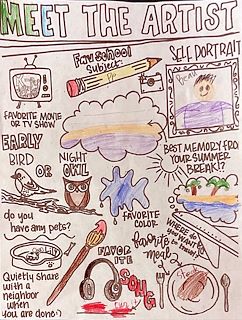 MEET THE ARTIST
Fav School
subject:
SELF PORTRAIT
FAVORITE MOVIE
OR TV SHOW
EARLY
BIRD
OR
NIGHT
OWL
BEST MEMORY FRO
YOUR SUMMER
BREAK!?
FAVORITE
COLOR
do you
have any pets?
WHERE DO
YOU WANT
to travel?
favorite
meal
FAVOR
ITE
SONG
Quietly share
with a
neighbor
when
you are done:)